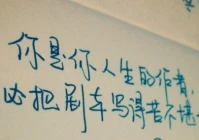 你是你人生的作者,
必把剧本写得苦不堪